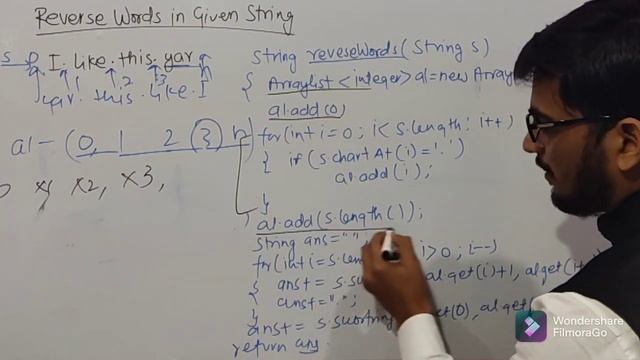 Reverse Words in Given String
s I. like. this. yar
yar. this. like. I
al - (0, 1 2 3
x2, x3,
String reveseWords( String s)
{ Arraylist <integer> al=new Array
al.add(0)
for(int i=0; i< s.length; i++)
{ if (s.charAt(i)='.')
al.add(i);
}
al.add(s.length());
string ans="";
for(int i=s. i>0; i--)
{ ans+ = s. al.get(i)+1, al.get(i+
ans+=".";
ans+ = s.substring (0), al.get
return ans.
Wondershare
FilmoraGo